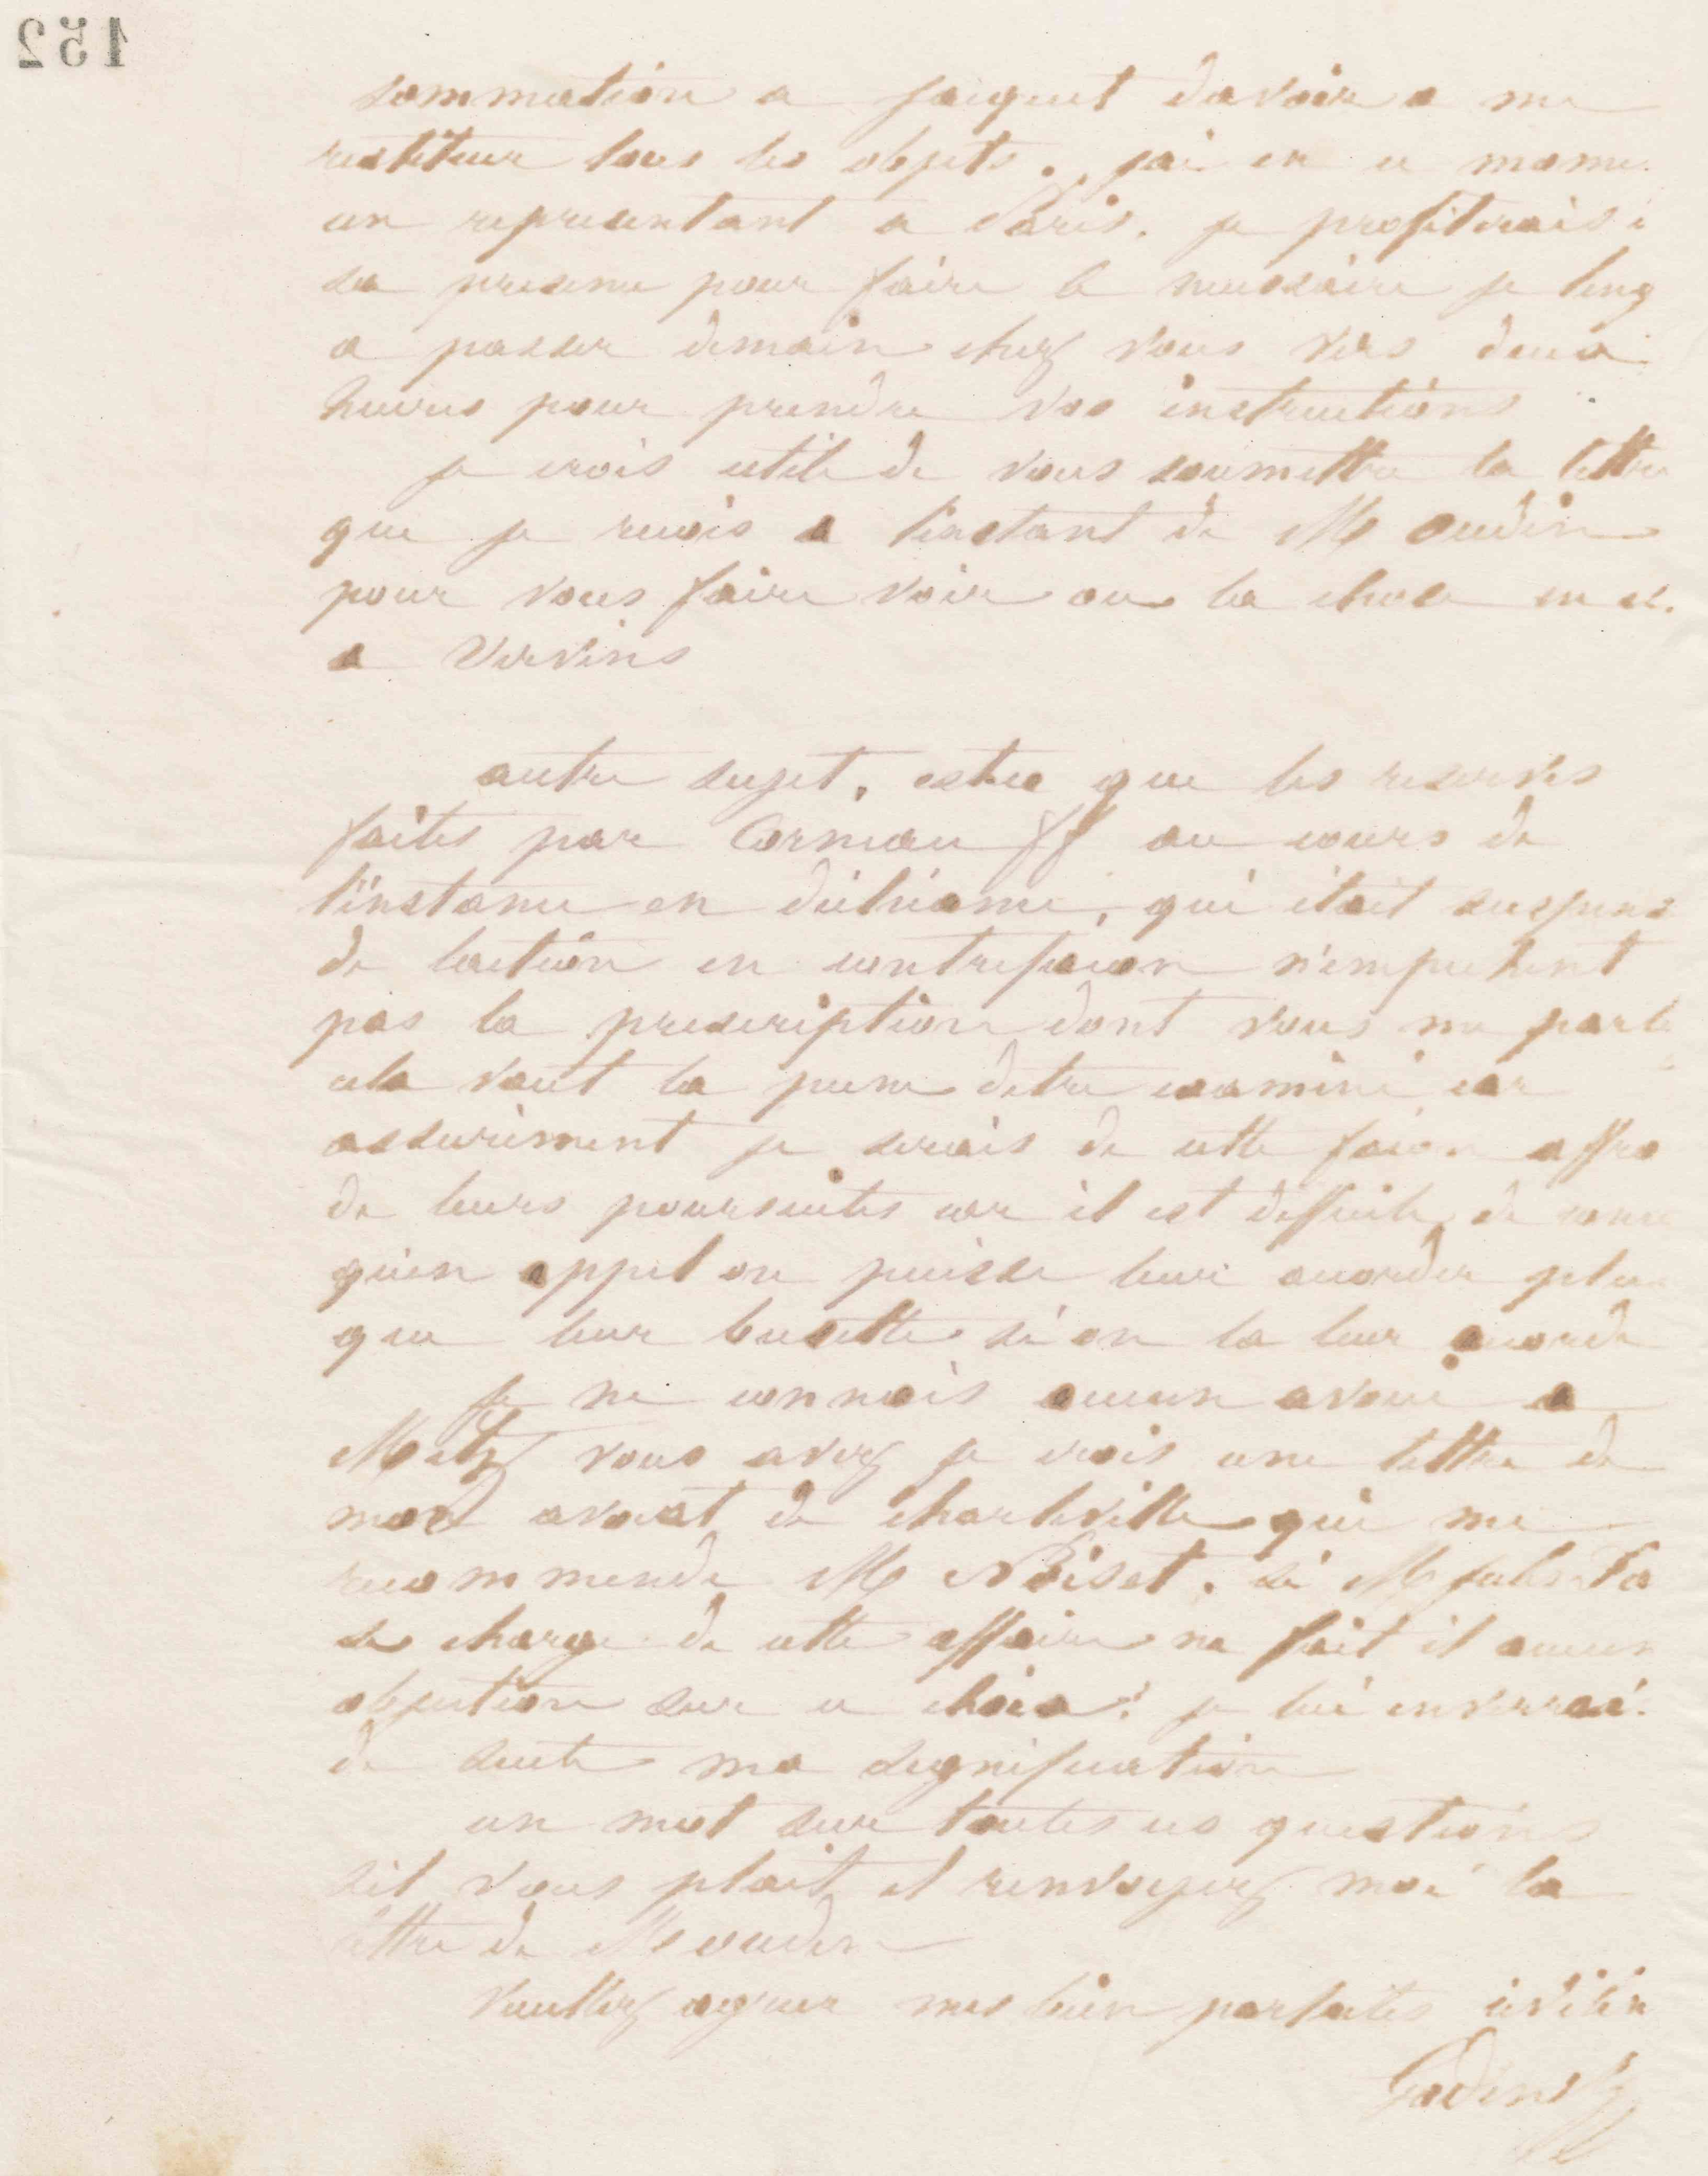 152
sommation a jacquet davoir a me
restituer tous les objets. jai en ce mome
un representant a Paris. je profiterais
sa presence pour faire le necessaire je
a passer demain chez vous vers deux
heures pour prendre vos instructions
je crois utile de vous soumettre la lettre
que je recois a linstant de Me Oudin
pour vous faire voir ou la chose en es
a Vervins
autre sujet. estce que les reserves
faites par Corneau ff au cours de
linstance en décheance, qui était suspens
de laction en contrefacon n'empechent
pas la prescription dont vous me parle
cela vaut la peine detre examiné car
assurément je serais de cette facon
de leurs poursuites car il est difficile de
quen appel on puisse leur accorder plus
que leur busette si on la leur accorde
je ne connais aucun avoué a
Metz vous avez je crois une lettre de
mon avocat de charleville qui me
recommende Me Noiset. si Me
se charge de cette affaire ne fait il aucun
objection sur ce choix? je lui enverrai
de suite ma signification
un mot sur toutes ces questions
sil vous plait et renvoyez moi la
lettre de Me oudin
Veuillez agreer mes bien parfaites civilit
Godin